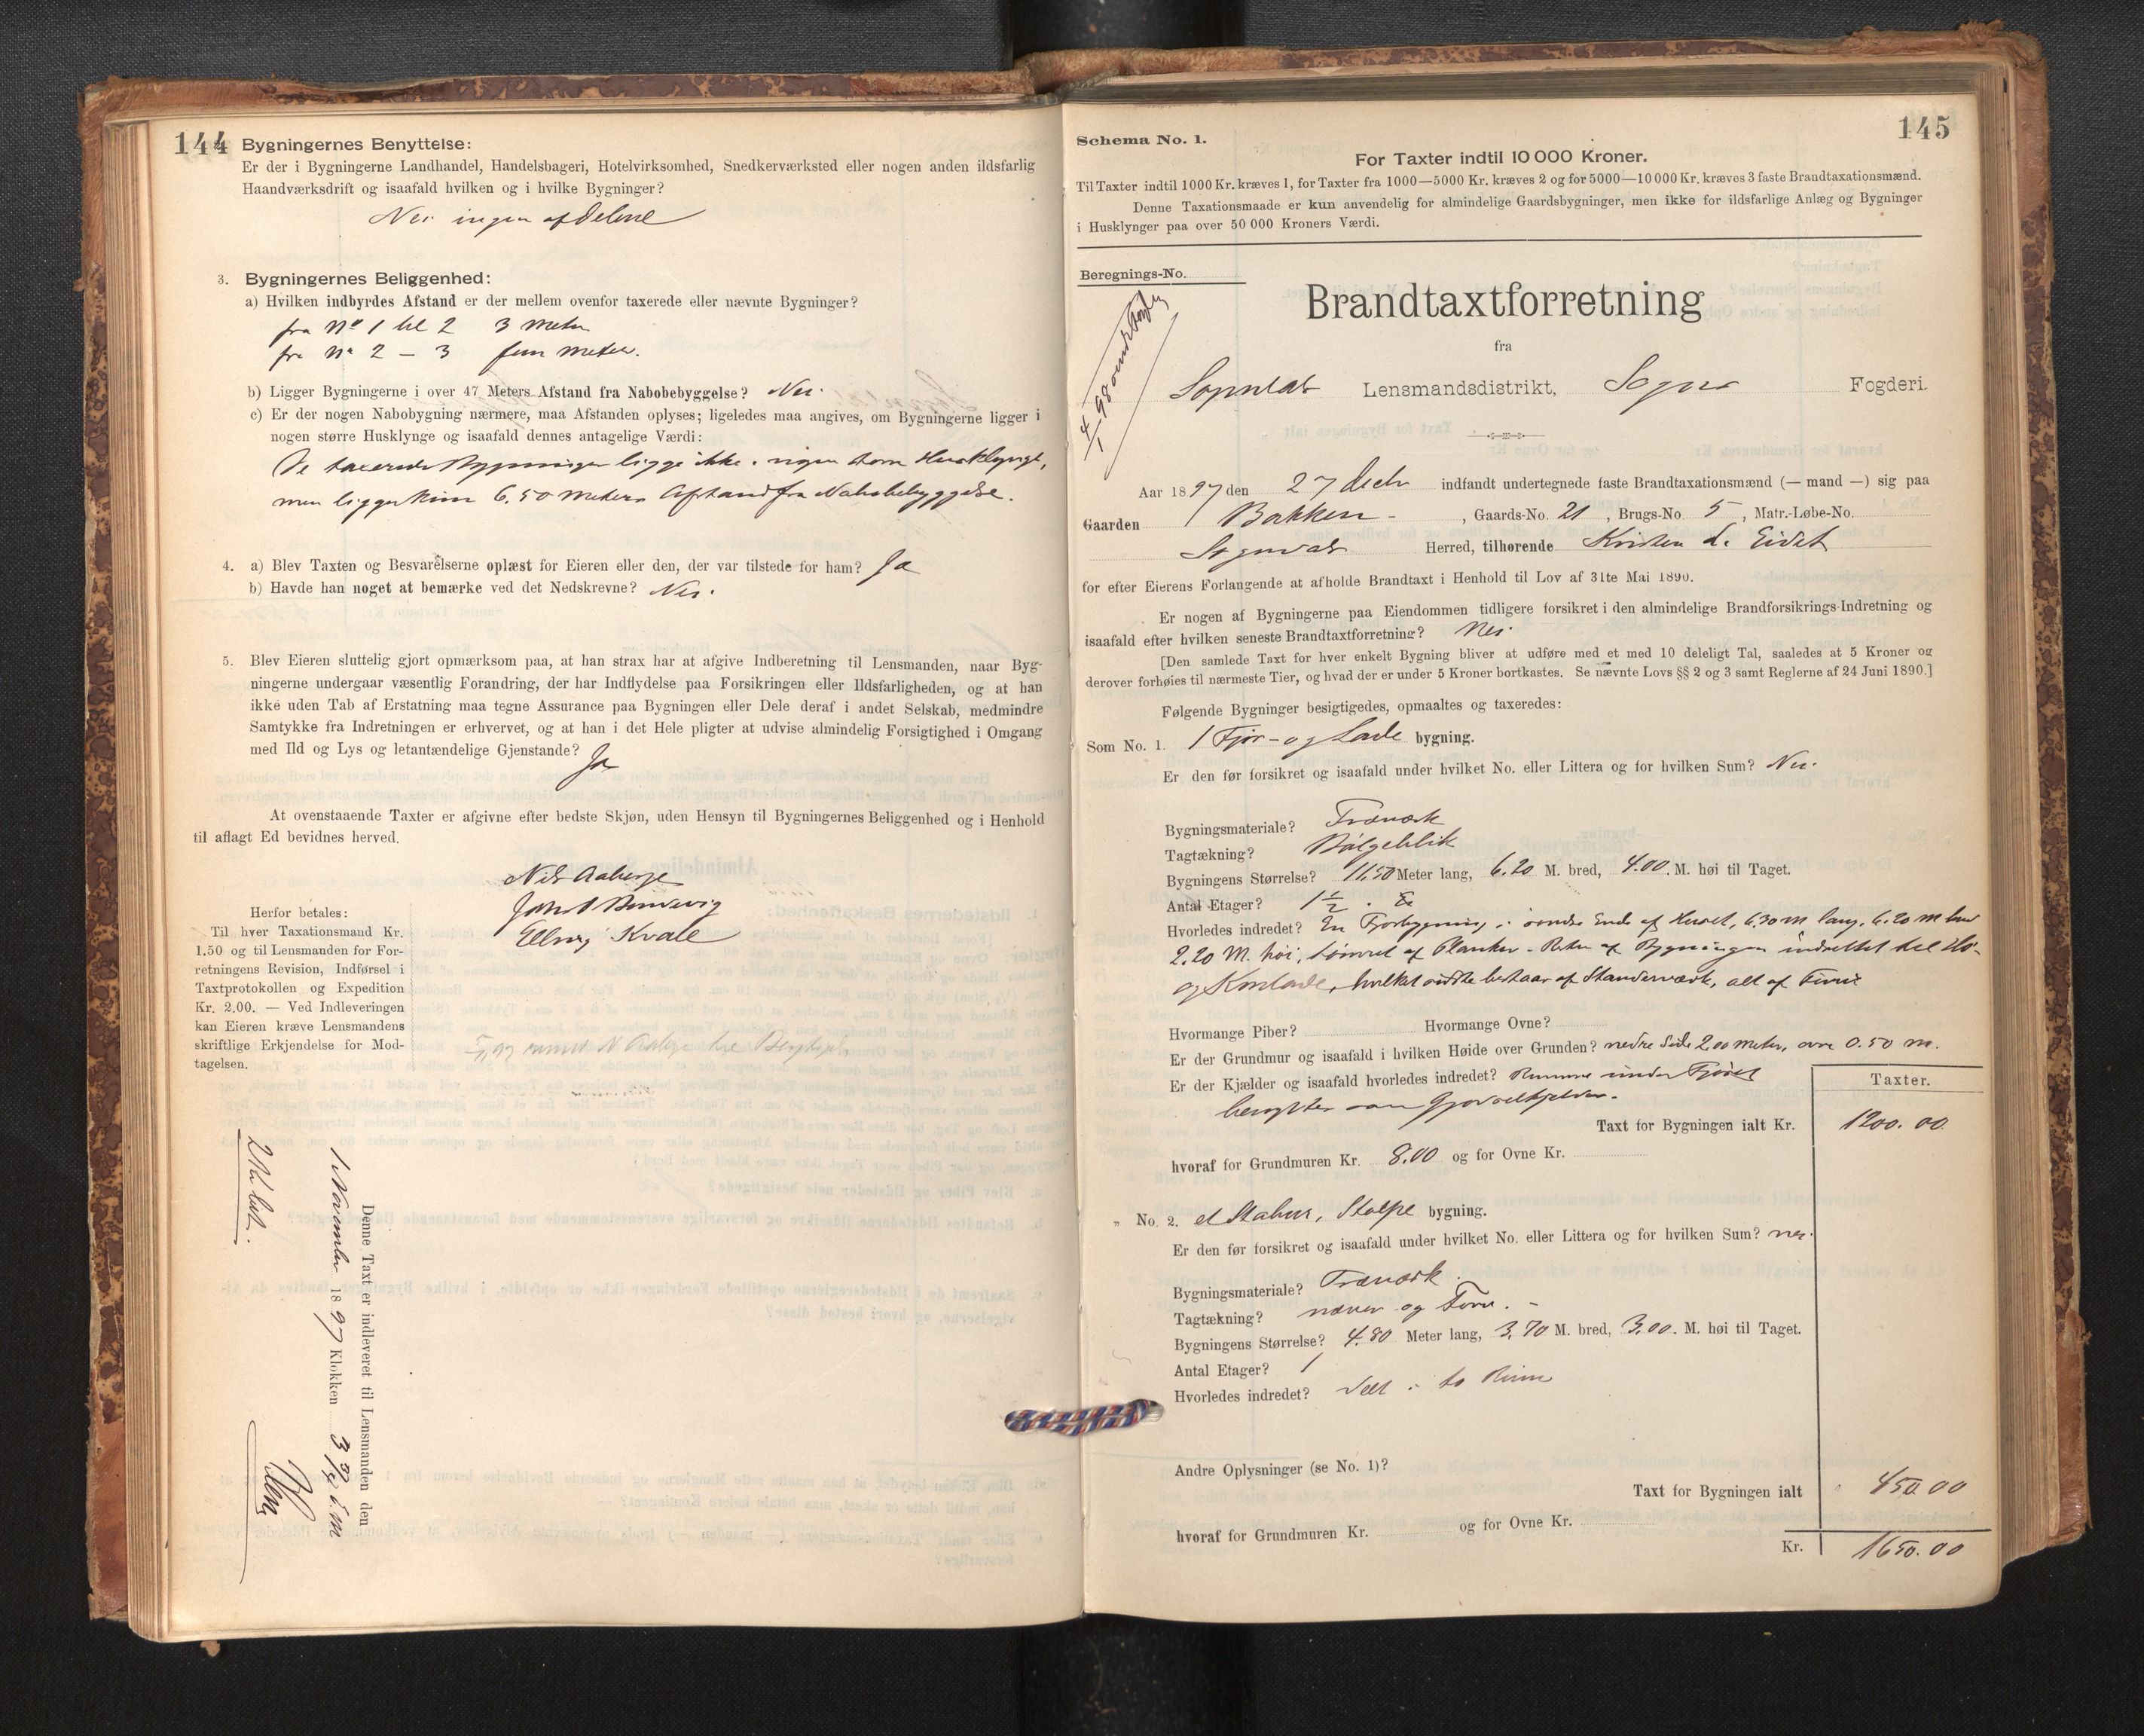 144
Bygningernes Benyttelse:
Er der i Bygningerne Landhandel, Handelsbageri, Hotelvirksomhed, Snedkerværksted eller nogen anden ildsfarlig
Haandværksdrift og isaafald hvilken og i hvilke Bygninger?
Nei ingen af delene
3. Bygningernes Beliggenhed:
a) Hvilken indbyrdes Afstand er der mellem ovenfor taxerede eller nævnte Bygninger?
fra No 1 til 2 3 meter
fra No 2 — 3 fem meter.
b) Ligger Bygningerne i over 47 Meters Afstand fra Nabobebyggelse? Nei.
c) Er der nogen Nabobygning nærmere, maa Afstanden oplyses; ligeledes maa angives, om Bygningerne ligger i
nogen større Husklynge og isaafald dennes antagelige Værdi:
De taxerede Bygninger ligge ikke i nogen større Husklynge,
men ligger kun 6,50 meters Afstand fra Nabobebyggelse.
4. a) Blev Taxten og Besvarelserne oplæst for Eieren eller den, der var tilstede for ham? Ja
b) Havde han noget at bemærke ved det Nedskrevne? Nei.
5. Blev Eieren sluttelig gjort opmærksom paa, at han strax har at afgive Indberetning til Lensmanden, naar Byg-
ningerne undergaar væsentlig Forandring, der har Indflydelse paa Forsikringen eller Ildsfarligheden, og at han
ikke uden Tab af Erstatning maa tegne Assurance paa Bygningen eller Dele deraf i andet Selskab, medmindre
Samtykke fra Indretningen er erhvervet, og at han i det Hele pligter at udvise almindelig Forsigtighed i Omgang
med Ild og Lys og letantændelige Gjenstande? Ja
At ovenstaaende Taxter er afgivne efter bedste Skjøn, uden Hensyn til Bygningernes Beliggenhed og i Henhold
til aflagt Ed bevidnes herved.
Nils Aaberge
Jakob
Elling Kvale
Herfor betales:
Til hver Taxationsmand Kr.
1.50 og til Lensmanden for For-
retningens Revision, Indførsel i
Taxtprotokollen og Expedition
Kr. 2.00. — Ved Indleveringen
kan Eieren kræve Lensmandens
skriftlige Erkjendelse for Mod-
tagelsen.
Denne Taxt er indleveret til Lensmanden den
1 November 1897 Klokken 3
145
Schema No. 1.
For Taxter indtil 10 000 Kroner.
Til Taxter indtil 1000 Kr. kræves 1, for Taxter fra 1000—5000 Kr. kræves 2 og for 5000—10 000 Kr. kræves 3 faste Brandtaxationsmænd.
Denne Taxationsmaade er kun anvendelig for almindelige Gaardsbygninger, men ikke for ildsfarlige Anlæg og Bygninger
i Husklynger paa over 50 000 Kroners Værdi.
Beregnings-No.
Brandtaxtforretning
fra
Sogndals Lensmandsdistrikt, Sogns Fogderi.
Aar 1897 den 27 decbr indfandt undertegnede faste Brandtaxationsmænd (— mand —) sig paa
Gaarden Bakken - , Gaards-No. 21 , Brugs-No. 5 , Matr.-Løbe-No.
Sogndals Herred, tilhørende Kristen L. Eidet
for efter Eierens Forlangende at afholde Brandtaxt i Henhold til Lov af 31te Mai 1890.
Er nogen af Bygningerne paa Eiendommen tidligere forsikret i den almindelige Brandforsikrings-Indretning og
isaafald efter hvilken seneste Brandtaxtforretning? Nei.
[Den samlede Taxt for hver enkelt Bygning bliver at udføre med et med 10 deleligt Tal, saaledes at 5 Kroner og
derover forhøies til nærmeste Tier, og hvad der er under 5 Kroner bortkastes. Se nævnte Lovs §§ 2 og 3 samt Reglerne af 24 Juni 1890.]
Følgende Bygninger besigtigedes, opmaaltes og taxeredes:
Som No. 1. 1 Fjør- og Lade bygning.
Er den før forsikret og isaafald under hvilket No. eller Littera og for hvilken Sum? Nei.
Bygningsmateriale? Træværk
Tagtækning? Bølgeblik
Bygningens Størrelse? 11.50 Meter lang, 6.20 M. bred, 4.00. M. høi til Taget.
Antal Etager? 1 1/2.
Hvorledes indredet? En Fjørbygning i søndre Ende af Huset, 6,30 m lang, 6.20 m bred
2.20 M. høi, tømret af Planker. Resten af Bygningen indrettet til Hø-
og Kornlade, hvilket sidste bestaar af Standerværk, alt af Furu
Hvormange Piber? Hvormange Ovne?
Er der Grundmur og isaafald i hvilken Høide over Grunden? nedre Side 2,00 meter, øvre 0.50 m.
Er der Kjælder og isaafald hvorledes indredet? Rummet under Fjøset
benyttes som Gjødselkjelder.
Taxter.
Taxt for Bygningen ialt Kr. 1200.00
hvoraf for Grundmuren Kr. 8.00 og for Ovne Kr.
" No. 2. et Stabur, Stolpe bygning.
Er den før forsikret og isaafald under hvilket No. eller Littera og for hvilken Sum? nei.
Bygningsmateriale? Træværk.
Tagtækning? næver og Torv. -
Bygningens Størrelse? 4.80 Meter lang, 3.70 M. bred, 3.00. M. høi til Taget.
Antal Etager? 1
Hvorledes indredet? delt i to Rum
Andre Oplysninger (se No. 1)?
Taxt for Bygningen ialt 450.00
hvoraf for Grundmuren Kr. og for Ovne Kr.
Kr. 1650.00